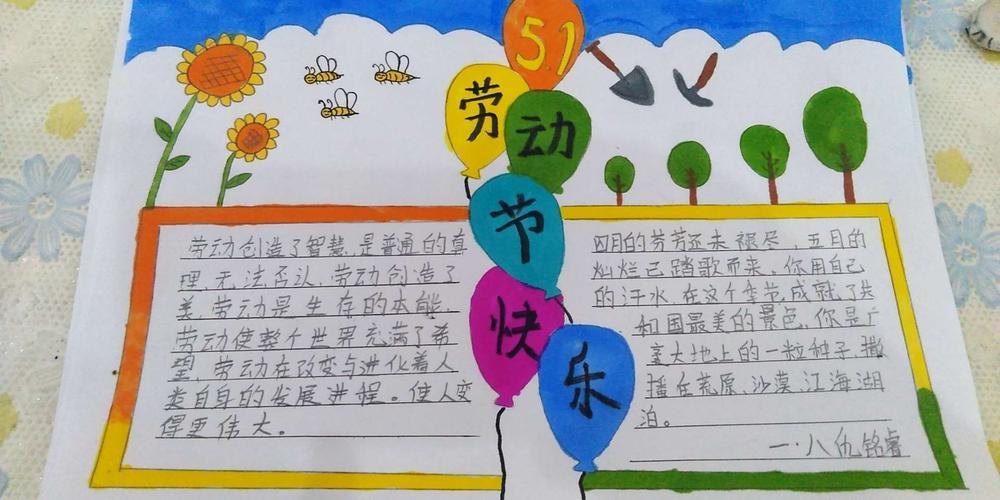 5.1
劳
动
节
快
乐
劳动创造了智慧,是普通的真
理,无法否认,劳动创造了
美,劳动是生存的本能,
劳动使整个世界充满了希
望,劳动在改变与进化着人
类自身的发展进程。使人变
得更伟大。
四月的芬芳还未褪尽,五月的
灿烂已踏歌而来,你用自己
的汗水,在这个季节,成就了共
和国最美的景色,你是广
袤大地上的一粒种子,撒
播在荒原、沙漠、江海湖
泊。
一·八仇铭睿